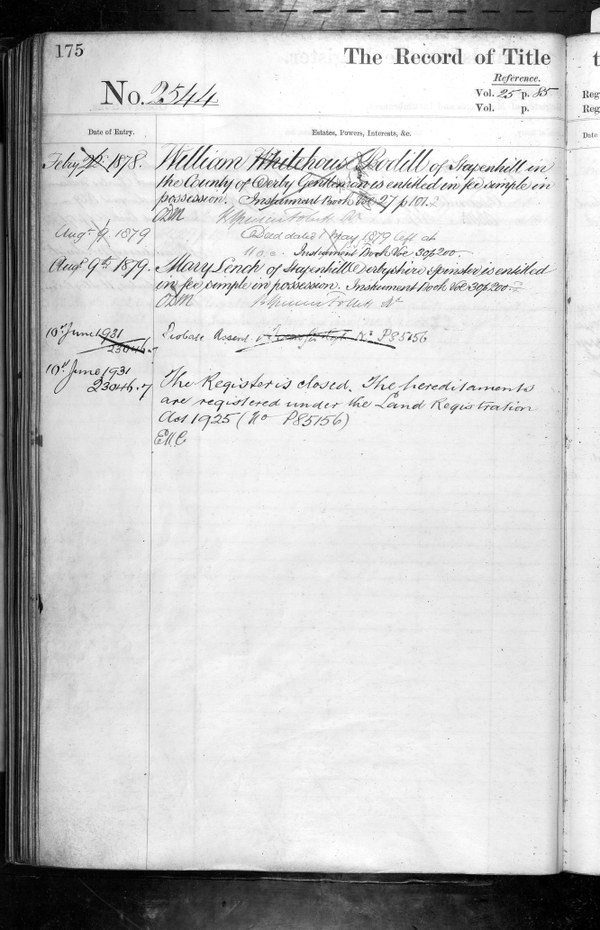 175
The Record of Title
Reference.
No. 2544
Vol. 25 p. 85
Vol. p.
Date of Entry.
Estates, Powers, Interests, &c.
Feby 1878. William Whitehous Bodill of Stapenhill in
the County of Derby Gentleman is entitled in fee simple in
possession. Instrument Book Vol 27 p 101.
Augt 9 1879 Deed dated May 1879 left at
Instrument Book Vol 30 p 200.
Augt 9th 1879. Mary Lench of Stapenhill Derbyshire Spinster is entitled
in fee simple in possession. Instrument Book Vol 30 p 200.
10th June 1931 Probate Assent No P85156
23046.7
10th June 1931
23046.7 The Register is closed. The hereditaments
are registered under the Land Registration
Act 1925 (No P85156)
t
Reg
Reg
Date